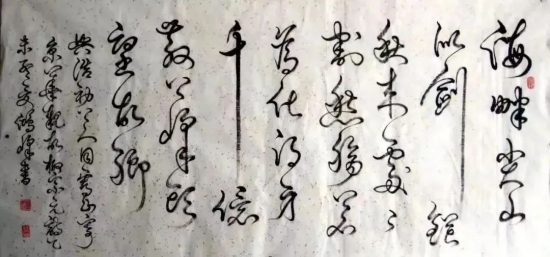 海畔尖山
似劍鋩
秋来處々
割愁腸若
為化得身
千億
散上峰頭
望故鄉
與浩初上人同看山寄
京華親故柳宗元詩乙
未書